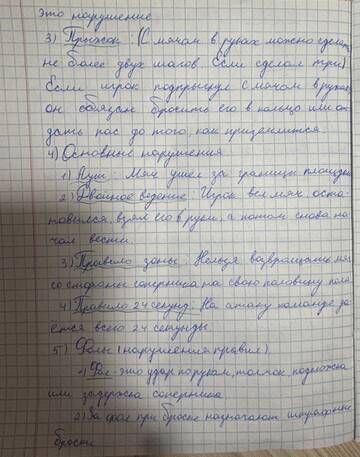 это нарушение
3) Прыжок: (С мячом в руках можно сделать
не более двух шагов. Если сделал три)
Если игрок подпрыгнул с мячом в руках,
он обязан бросить его в кольцо или от-
дать пас до того, как приземлится.
4) Основные нарушения
1) Аут: Мяч ушел за границы площадки
2) Двойное ведение: Игрок вел мяч, оста-
новился, взял его в руки, а потом снова на-
чал вести.
3) Правило зоны: Нельзя возвращать мяч
со стороны соперника на свою половину поля
4) Правило 24 секунд: На атаку команде да-
ется всего 24 секунды.
5) Фолы (нарушения правил)
1) Фол - это удар по рукам, толчок, подножка
или задержка соперника
2) За фол при броске назначают штрафные
броски